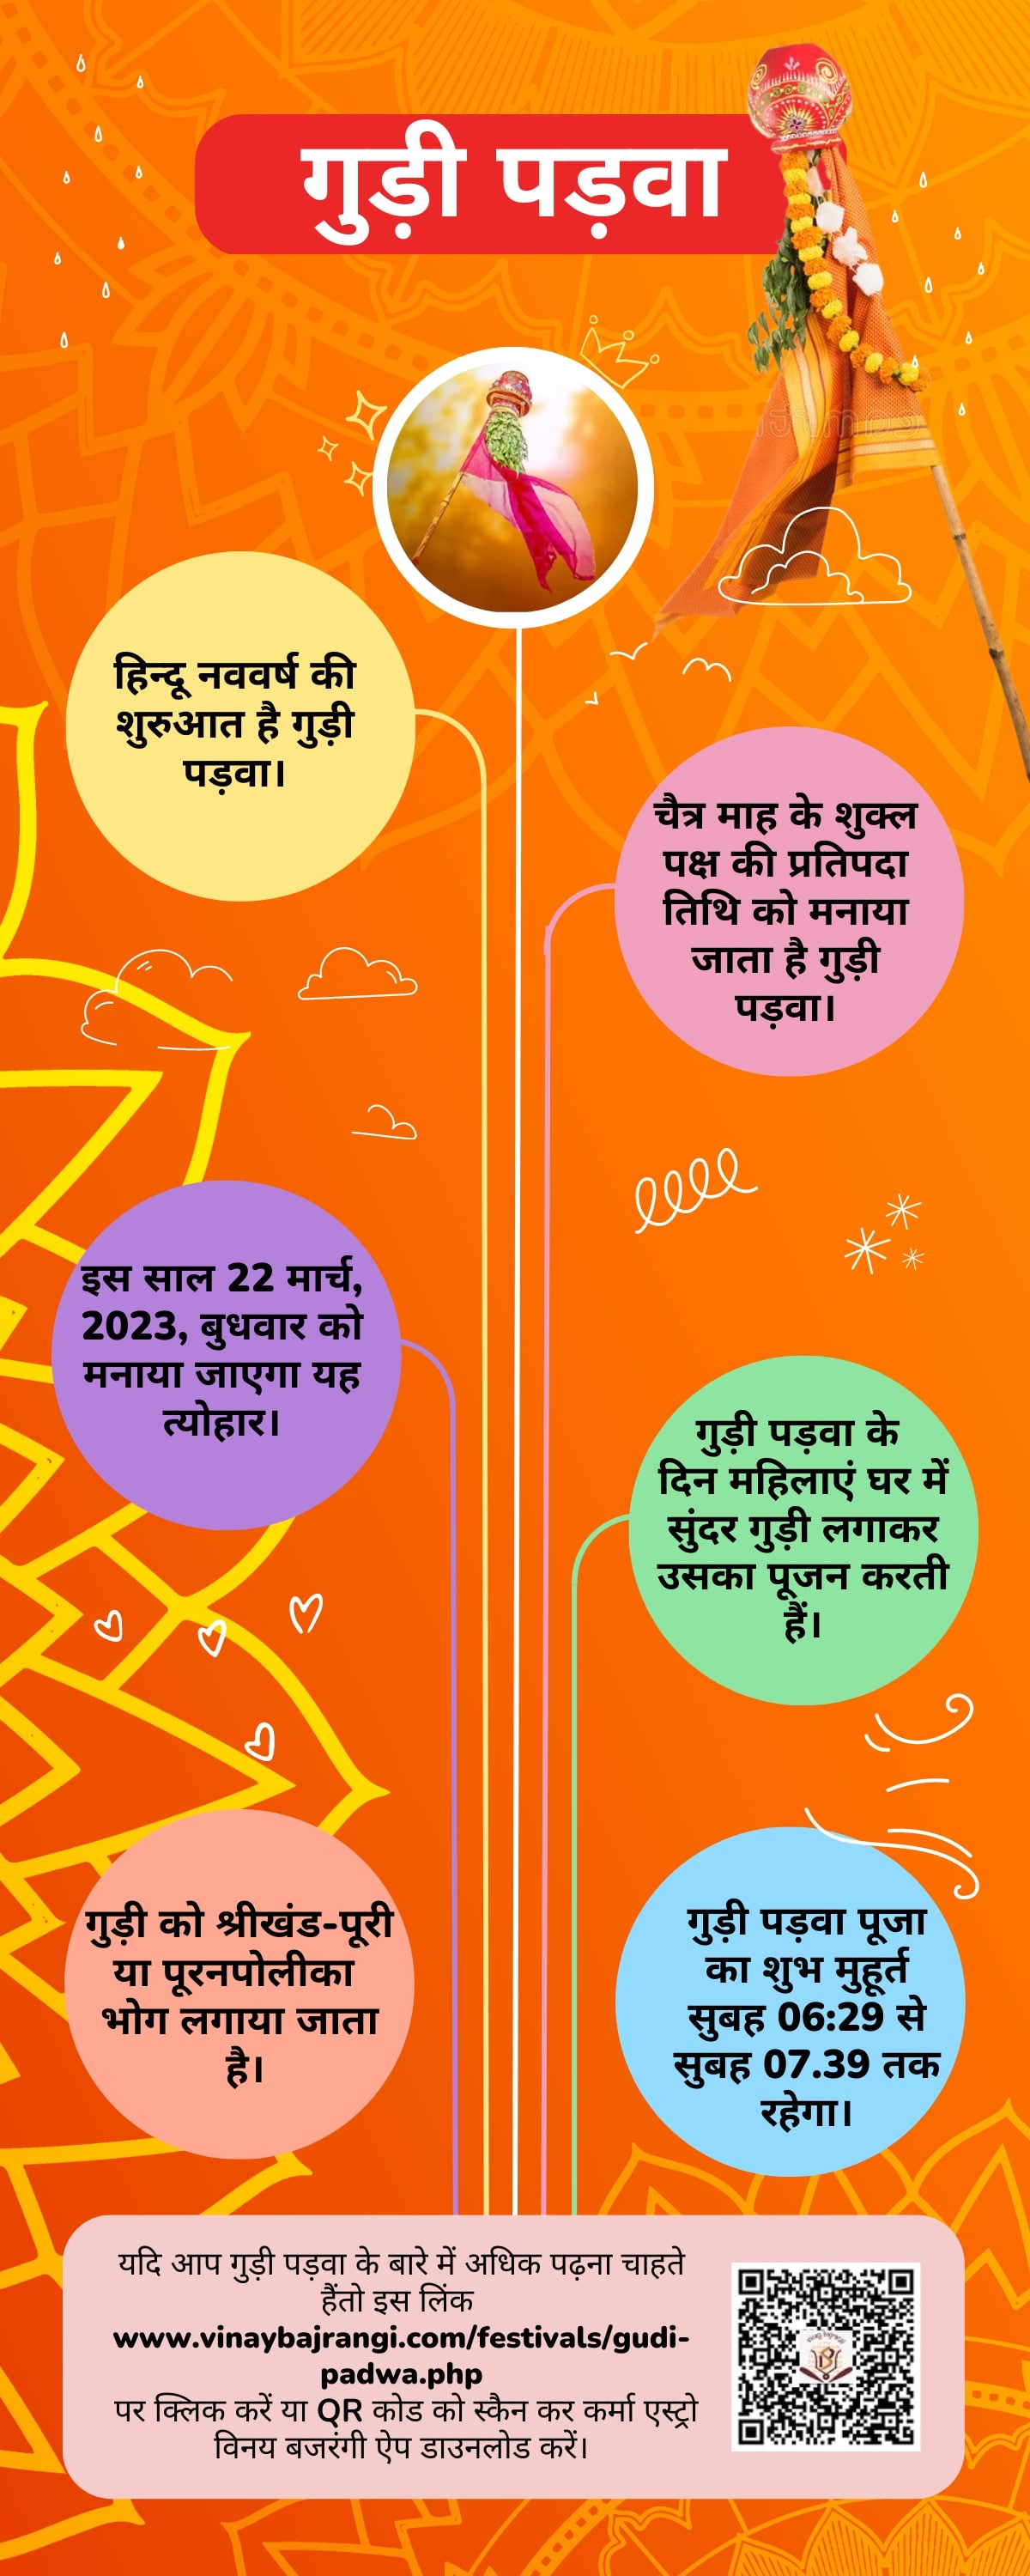 गुड़ी पड़वा
हिन्दू नववर्ष की
शुरुआत है गुड़ी
पड़वा।
चैत्र माह के शुक्ल
पक्ष की प्रतिपदा
तिथि को मनाया
जाता है गुड़ी
पड़वा।
इस साल 22 मार्च,
2023, बुधवार को
मनाया जाएगा यह
त्योहार।
गुड़ी पड़वा के
दिन महिलाएं घर में
सुंदर गुड़ी लगाकर
उसका पूजन करती
हैं।
गुड़ी को श्रीखंड-पूरी
या पूरनपोलीका
भोग लगाया जाता
है।
गुड़ी पड़वा पूजा
का शुभ मुहूर्त
सुबह 06:29 से
सुबह 07.39 तक
रहेगा।
यदि आप गुड़ी पड़वा के बारे में अधिक पढ़ना चाहते
हैंतो इस लिंक
www.vinaybajrangi.com/festivals/gudi-
padwa.php
पर क्लिक करें या QR कोड को स्कैन कर कर्मा एस्ट्रो
विनय बजरंगी ऐप डाउनलोड करें।